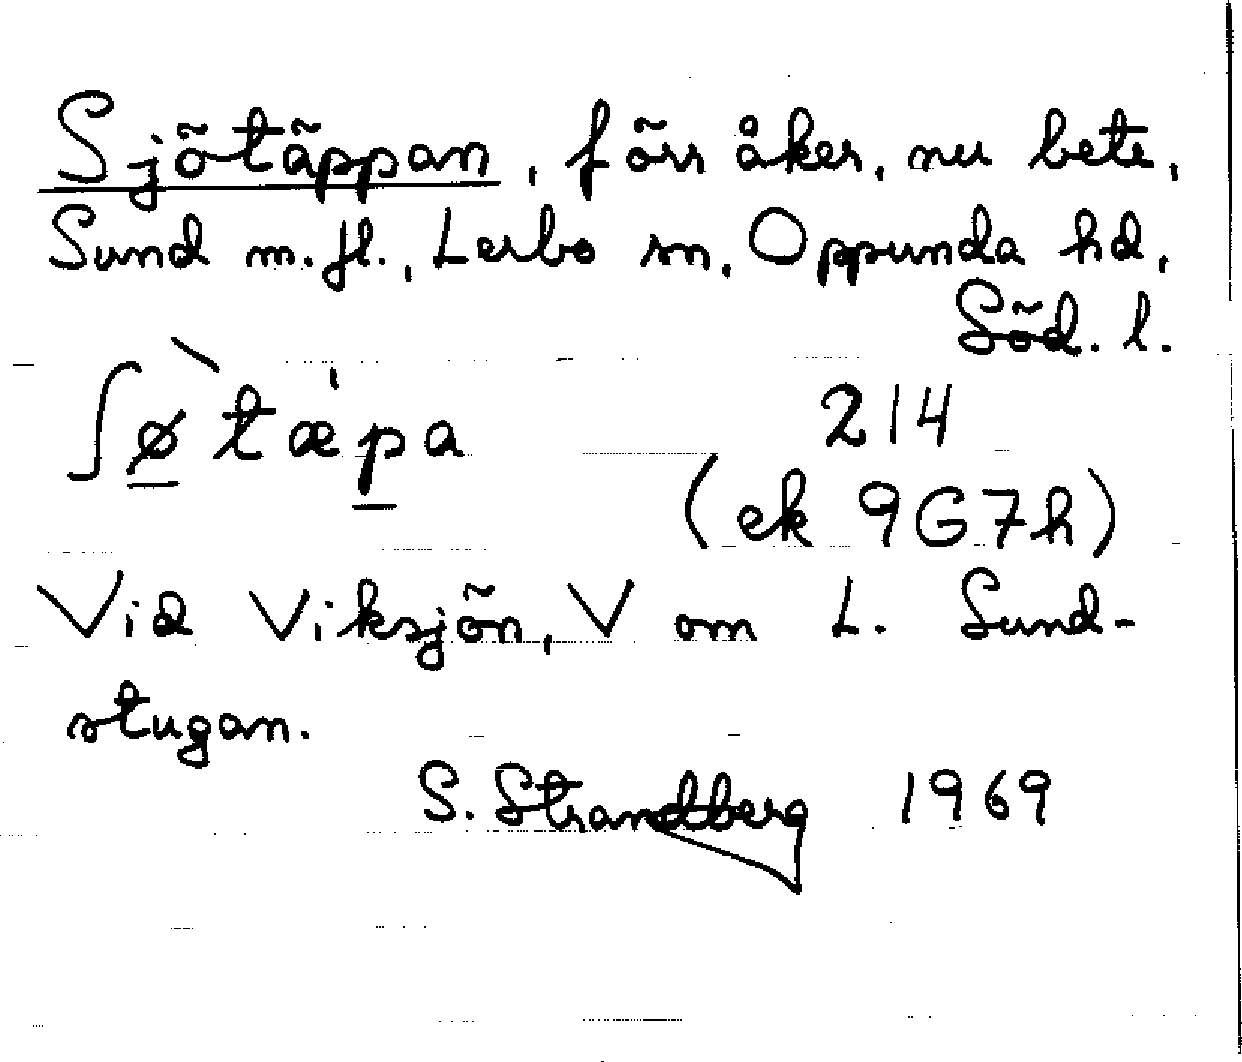 Sjötäppan, förr åker, nu bete,
Sund m.fl., Lerbo sn, Oppunda hd,
Söd. l.
ʃø̱̀tæ'p̱a 214
(ek 9G7h)
Vid Viksjön, V om L. Sund-
stugan.
S. Strandberg 1969